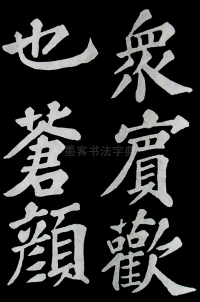 眾賓歡
也蒼顏
墨客书法字典